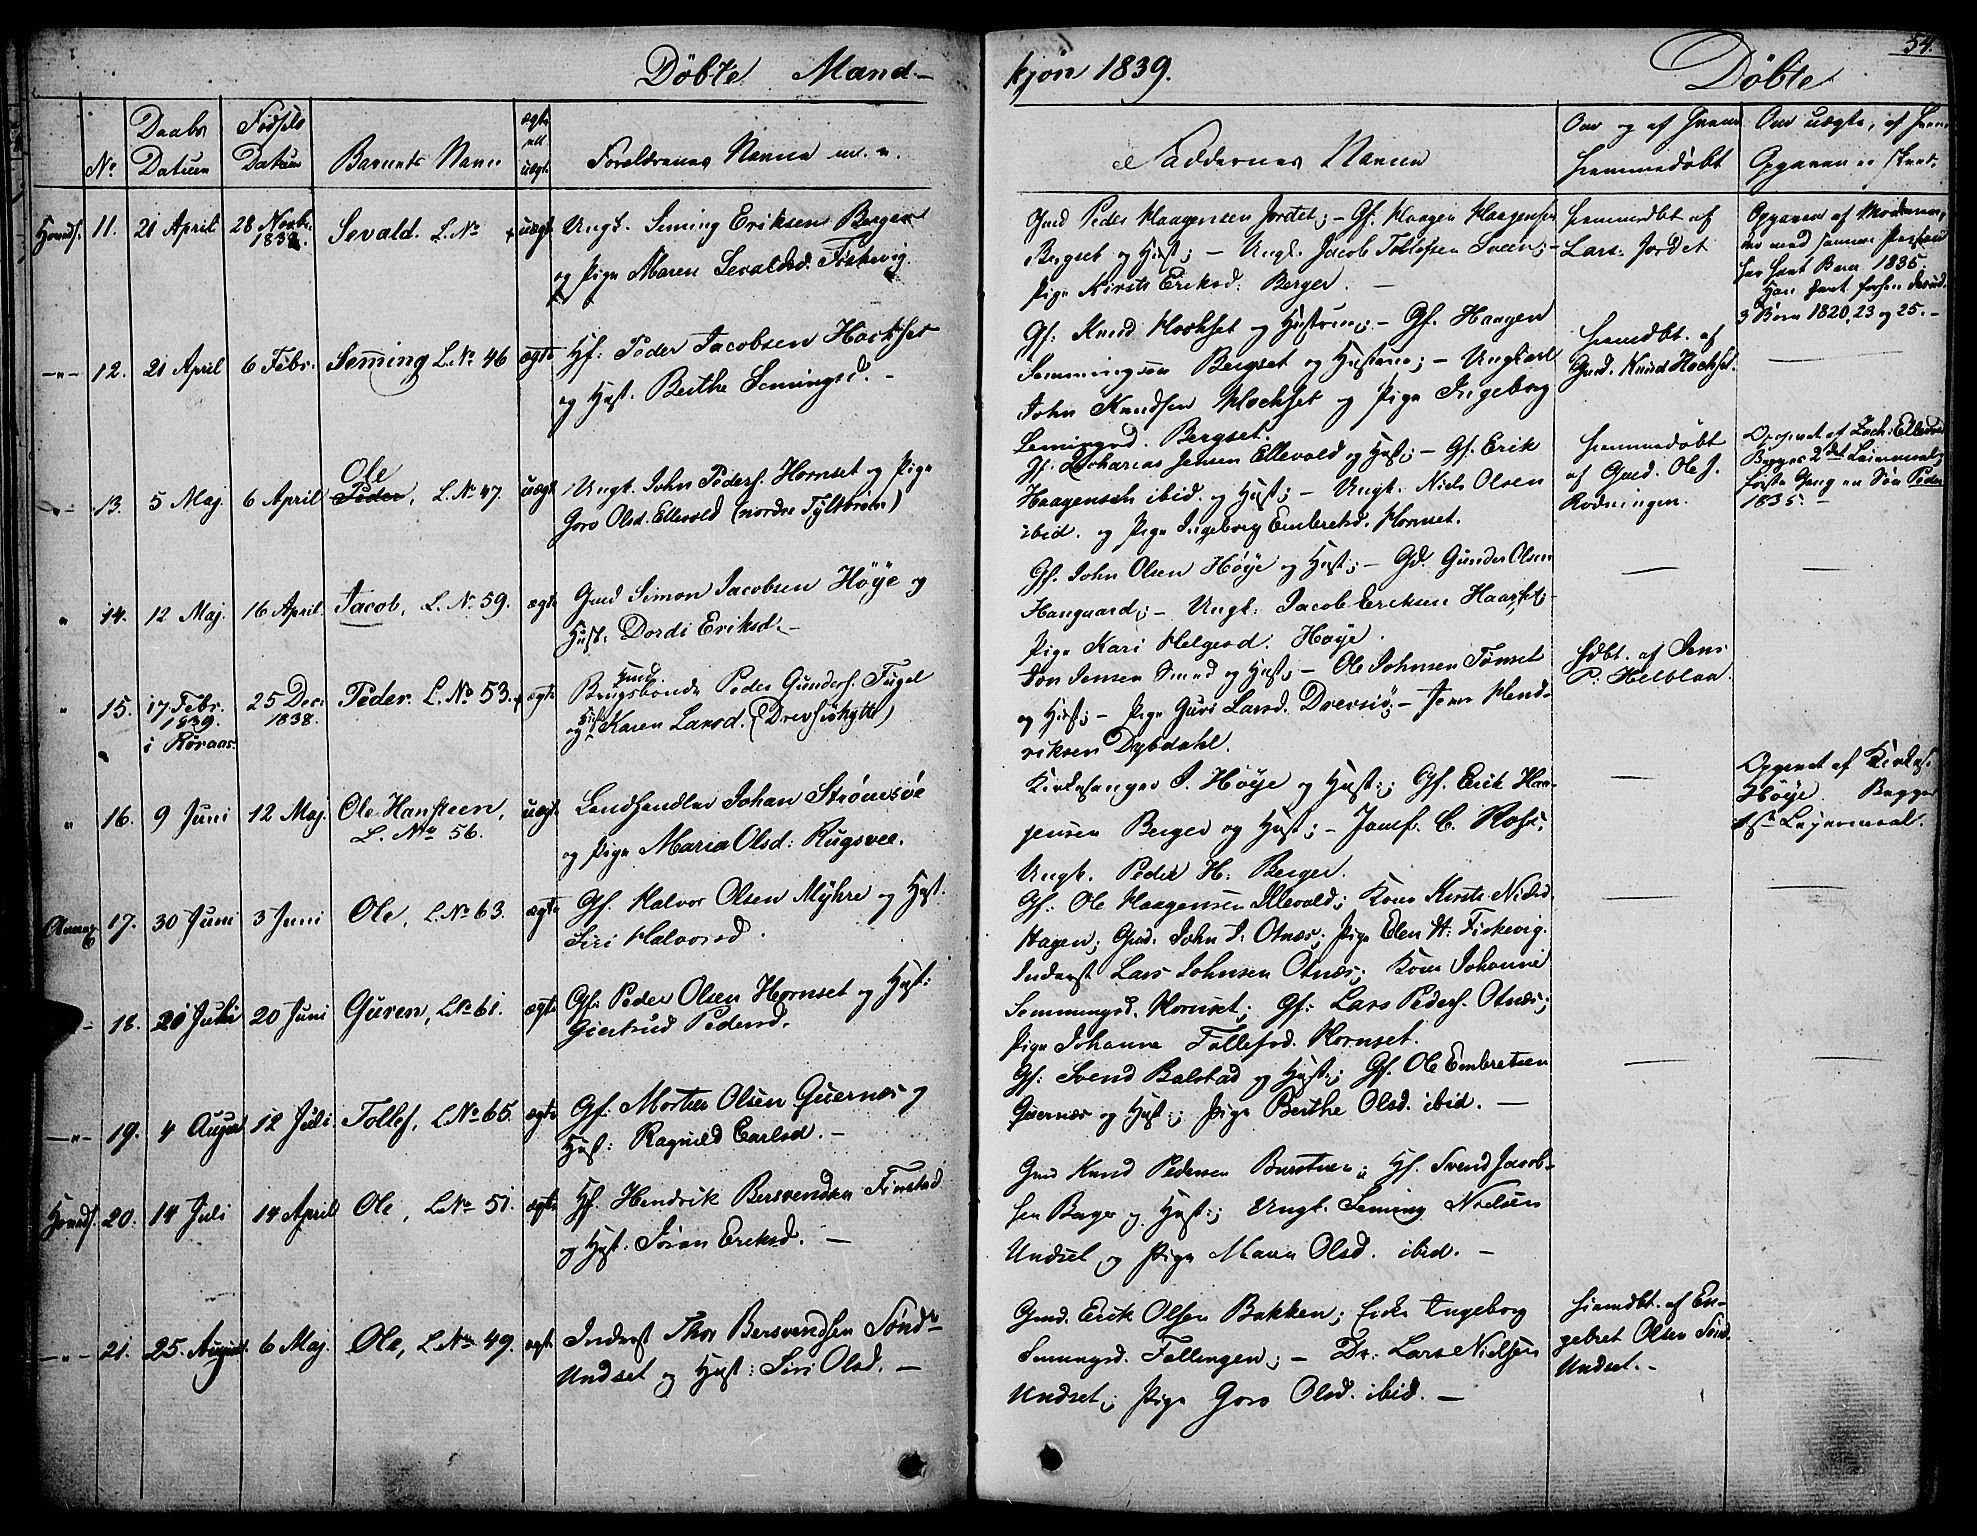 54.
Döbte Mand-
kjön 1839.
Döbte
No
Daabs Datum
Födsels Datum
Barnets Navn
ægte ell uægte
Forældrenes Navne m. v.
Faddernes Navne
Om og af hvem hjemmedöbt
Om uægte, af hvem Opgaven er skeet.
Hoveds. 11. 21 April 28 Novbr. 1838. Sevald. L. No uægte
Ungk. Seming Eriksen Berger
og Pige Maren Sevaldsd. Fiskevig.
Gmd Peder Haagensen Jordet; - Gf. Haagen Haagensen
Bergset og Hust; - Ungk. Jacob Tollefsen Sveen; -
Pige Kirsti Eriksd. Berger. -
hjemmedbt af
Lars Jordet
Opgaven af Moderen,
der med samme Person
har havt Barn 1835.
Han havt forhen
3 Börn 1820, 23 og 25. -
-"- 12. 21 April 6 Febr. Seming L. No 46 ægte
Hf: Peder Jacobsen Hockset
og Hust. Berthe Semingsd. -
Gf: Knud Hockset og Hustrue; - Gf. Haagen
Semmingsen Bergset og Hustrue; - Ungkarl
John Knudsen Hockset og Pige Ingeborg
Semingsd. Bergset.
hjemdbt. af
Gmd. Knud Hockset.
13. 5 Maj 6 April Ole Peder, L. No 47. uægte
Ungk. John Peders. Hornset og Pige
Goro Olsd. Ellevold (nordre Fylsbrøen)
Gf. Zacharias Jensen Ellevold og Hust; - Gf. Erik
Haagensen ibid. og Hust; - Ungk. Niels Olsen
ibid. og Pige Ingeborg Embretsd. Hornset.
hjemmedöbt
af Gmd. Ole J.
Rødningen.
Opgivet af Zach: Ellevold
Begges 2det Leiermaal,
første Gang en Søn Peder
1835. -
" 14. 12 Maj. 16 April. Jacob, L. No 59. ægte
Gmd Simon Jacobsen Höye og
Hust: Dordi Eriksd. -
Gf. John Olsen Höye og Hust; - Gd. Gunder Olsen
Haugaard; - Ungk: Jacob Eriksen Haarset; -
Pige Kari Helgesd. Høye.
" 15. 17 Febr. 1839. i Röraas 25 Dec. 1838. Peder. L. No 53. ægte
Hmd. Brugsbonde Peder Gunders. Fugel
og Hust. Karen Larsd. (Drevsjøhytte)
Jon Jensen Smed og Hust; - Ole Johnsen Tomset
og Hust; - Pige Guri Larsd. Drevsiø; - Jens Hend-
riksen Dybdahl.
hdbt. af Jens
P. Helblan.
" 16. 9 Juni 12 Maj. Ole Hansteen, L. No 56. uægte
Landhandler Johan Strömsöe
og Pige Maria Olsd: Rugsvee.
Kirkesanger J. Höye og Hust:; Gf. Erik Haa-
gensen Berger og Hust; - Jomf. C. Hoss;
Ungk. Peder H. Berger.
Opgivet af Kirkes.
Höye. Begges
1ste Lejermaal.
Annex 17. 30 Juni 3 Juni Ole, L. No 63. ægte
Gf. Halvor Olsen Myhre og Hust.
Siri Halvorsd.
Gf: Ole Haagensen Ellevold; Kone Kirsti Nielsd.
Hagen; Gmd. John J. Otnæs; Pige Elen H. Fiskevig.
18. 21 Juli 20 Juni Guren, L. No 61. ægte
Gf: Peder Olsen Hornset og Hust:
Giertrud Pedersd.
Inderst Lars Johnsen Otnæs; Kone Johanne
Semmingsd. Hornset; Gf: Lars Peders. Otnæs;
Pige Johanne Tollefsd. Hornset.
-"- 19. 4 August 12 Juli Tollef, L. No 65. ægte
Gf: Morten Olsen Quernæs og
Hust: Ragnild Carlsd. -
Gf: Svend Balstad og Hust:; Gf. Ole Embretsen
Quernæs og Hust:; Pige Berthe Olsd. ibid. -
Hoveds. 20. 14 Juli 14 April Ole, L. No 51. ægte
Hf. Hendrik Bersvendsen Finstad
og Hust. Jöran Eriksd. -
Gmd Knud Pedersen; Hf. Svend Jacob-
sen Berger og Hust:; Ungk. Seming Nielsen
Undset og Pige Maria Olsd. ibid. -
-"- 21. 25 August 6 Maj. Ole, L. No 49. ægte
Inderst Thor Bersvendsen Sönd-
Undset og Hust: Siri Olsd. -
Gmd. Erik Olsen Bakken; Enke Ingeborg
Semingsd. Fallingen; - Dr. Lars Nielsen
Undset; Pige Goro Olsd. ibid. -
hjemdbt. af En-
gebret Olsen Sönd.
Undset. -